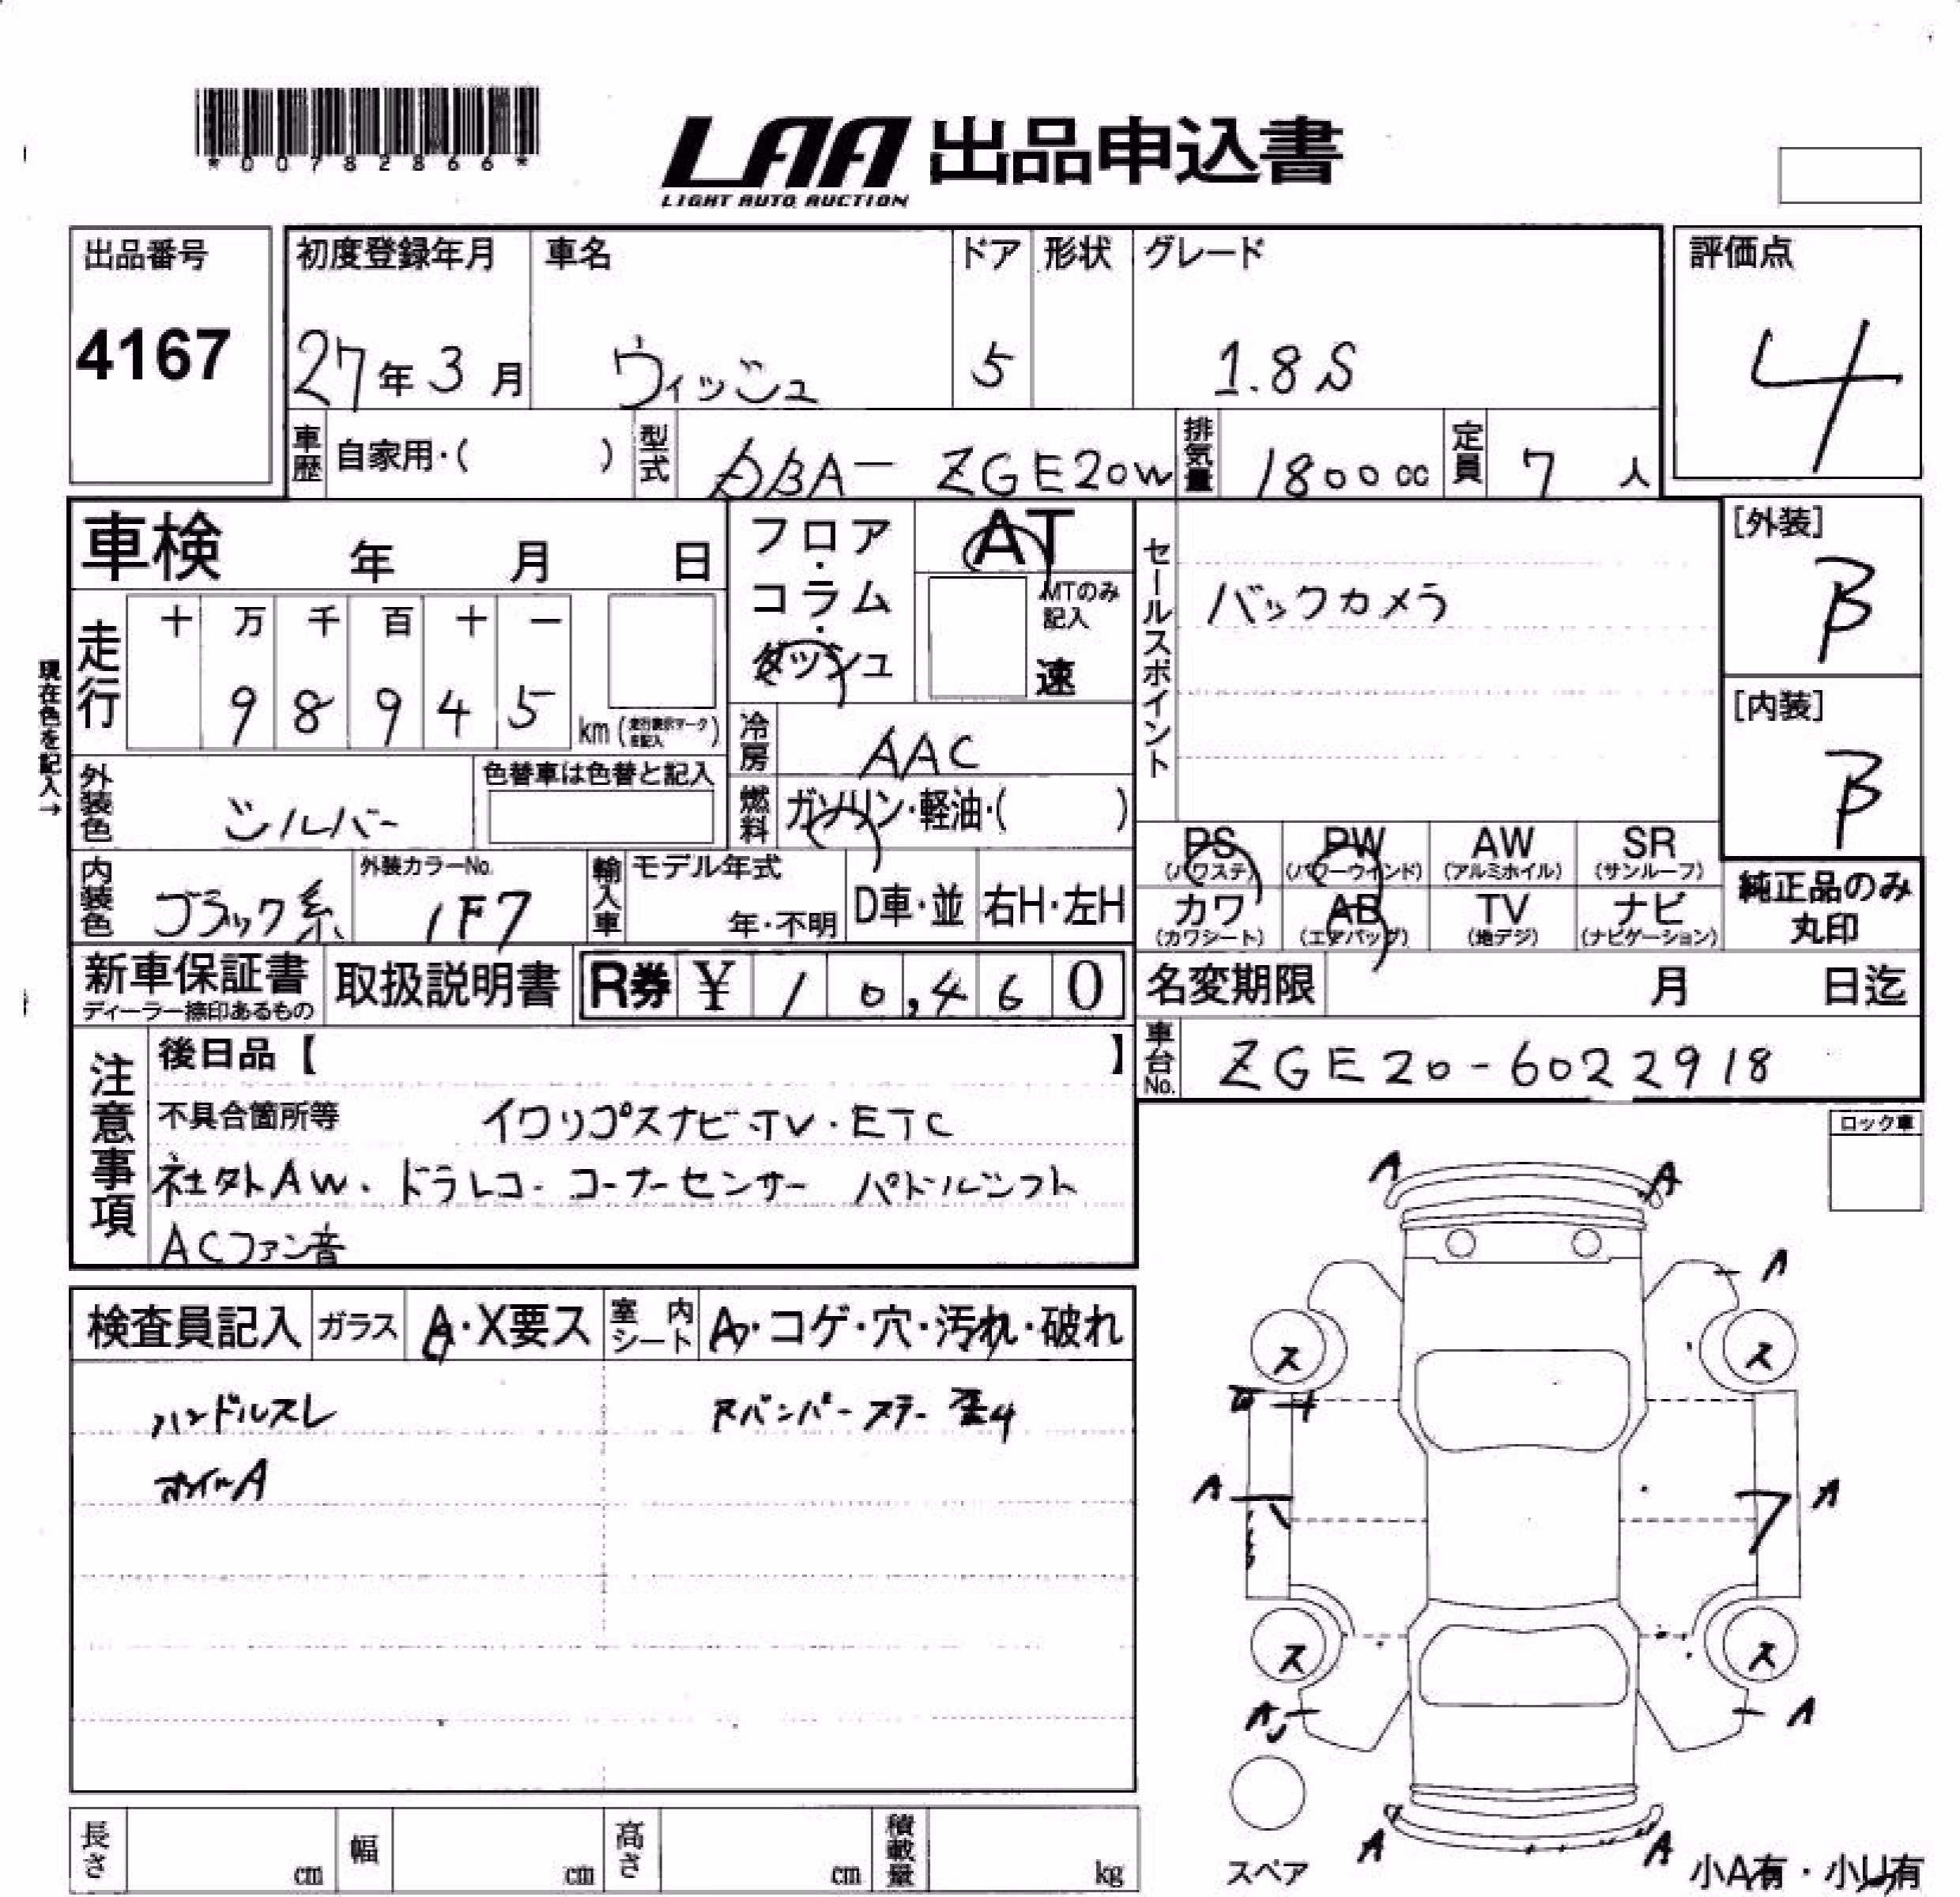 *00782866*
LAA 出品申込書
LIGHT AUTO AUCTION
出品番号
4167
初度登録年月
27年3月
車名
ウィッシュ
ドア
5
形状
グレード
1.8S
評価点
4
車歴
自家用・( )
型式
DBA- ZGE20W
排気量
1800cc
定員
7人
車検 年 月 日
フロア・コラム・ダッシュ
AT
MTのみ記入
速
セールスポイント
バックカメラ
[外装]
B
[内装]
B
現在色を記入→
走行
十 万 千 百 十 一
9 8 9 4 5
km
冷房
AAC
外装色
シルバー
色替車は色替と記入
燃料
ガソリン・軽油・( )
PS
(パワステ)
PW
(パワーウインド)
AW
(アルミホイル)
SR
(サンルーフ)
カワ
(カワシート)
AB
(エアバッグ)
TV
(地デジ)
ナビ
(ナビゲーション)
純正品のみ
丸印
内装色
ブラック系
外装カラーNo.
1F7
輸入車
モデル年式
年・不明
D車・並
右H・左H
新車保証書
ディーラー捺印あるもの
取扱説明書
R券 ¥ 10,460
名変期限 月 日迄
車台No.
ZGE20-6022918
注意事項
後日品【 】
不具合箇所等
イクリプスナビ・TV・ETC
社外AW・ドラレコ・コーナーセンサー パドルシフト
ACファン音
ロック車
検査員記入
ガラス
A・X要ス
室内シート
A・コゲ・穴・汚れ・破れ
ハンドルスレ
ホイールA
バンパーステー
A A
A
ス ス
A A
ス ス
A A
A A
スペア
小A有・小U有
長さ cm
幅 cm
高さ cm
積載量 kg